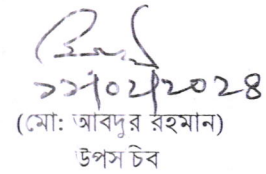 ২১/০২/২০২৪
(মো: আবদুর রহমান)
উপস চিব